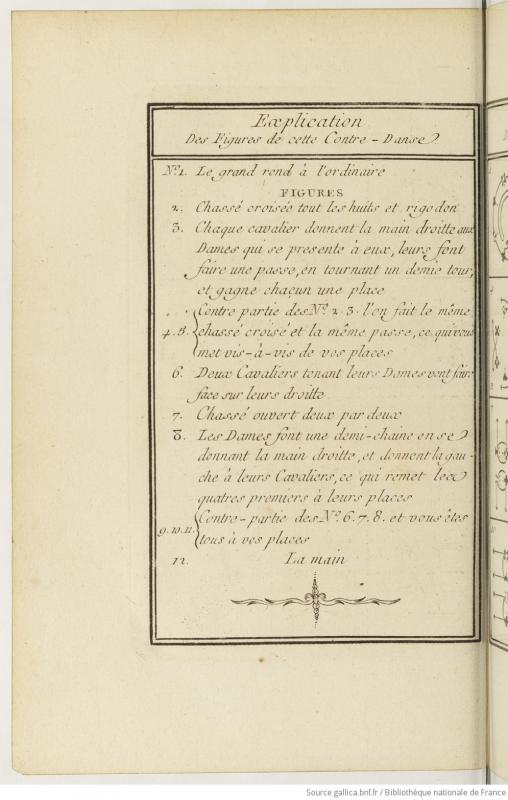 Explication
Des Figures de cette Contre-Danse
Nº.1. Le grand rond à l'ordinaire
FIGURES
2. Chassé croisée tout les huits et rigodon
3. Chaque cavalier donnent la main droitte aux
Dames qui se presente à eux, leurs font
faire une passe, en tournant un demie tour,
et gagne chacun une place
Contre partie des Nº. 2. 3. l'on fait le même
4. 5. chassé croisé et la même passe, ce qui vous
met vis-à-vis de vos places
6. Deux Cavaliers tenant leurs Dames vont faire
face sur leurs droitte
7. Chassé ouvert deux par deux
8. Les Dames font une demi-chaine en se
donnant la main droitte, et donnent la gau-
che à leurs Cavaliers, ce qui remet les
quatres premiers à leurs places
Contre-partie des Nº. 6. 7. 8. et vous êtes
9. 10. 11. tous à vos places
12. La main
Source gallica.bnf.fr / Bibliothèque nationale de France